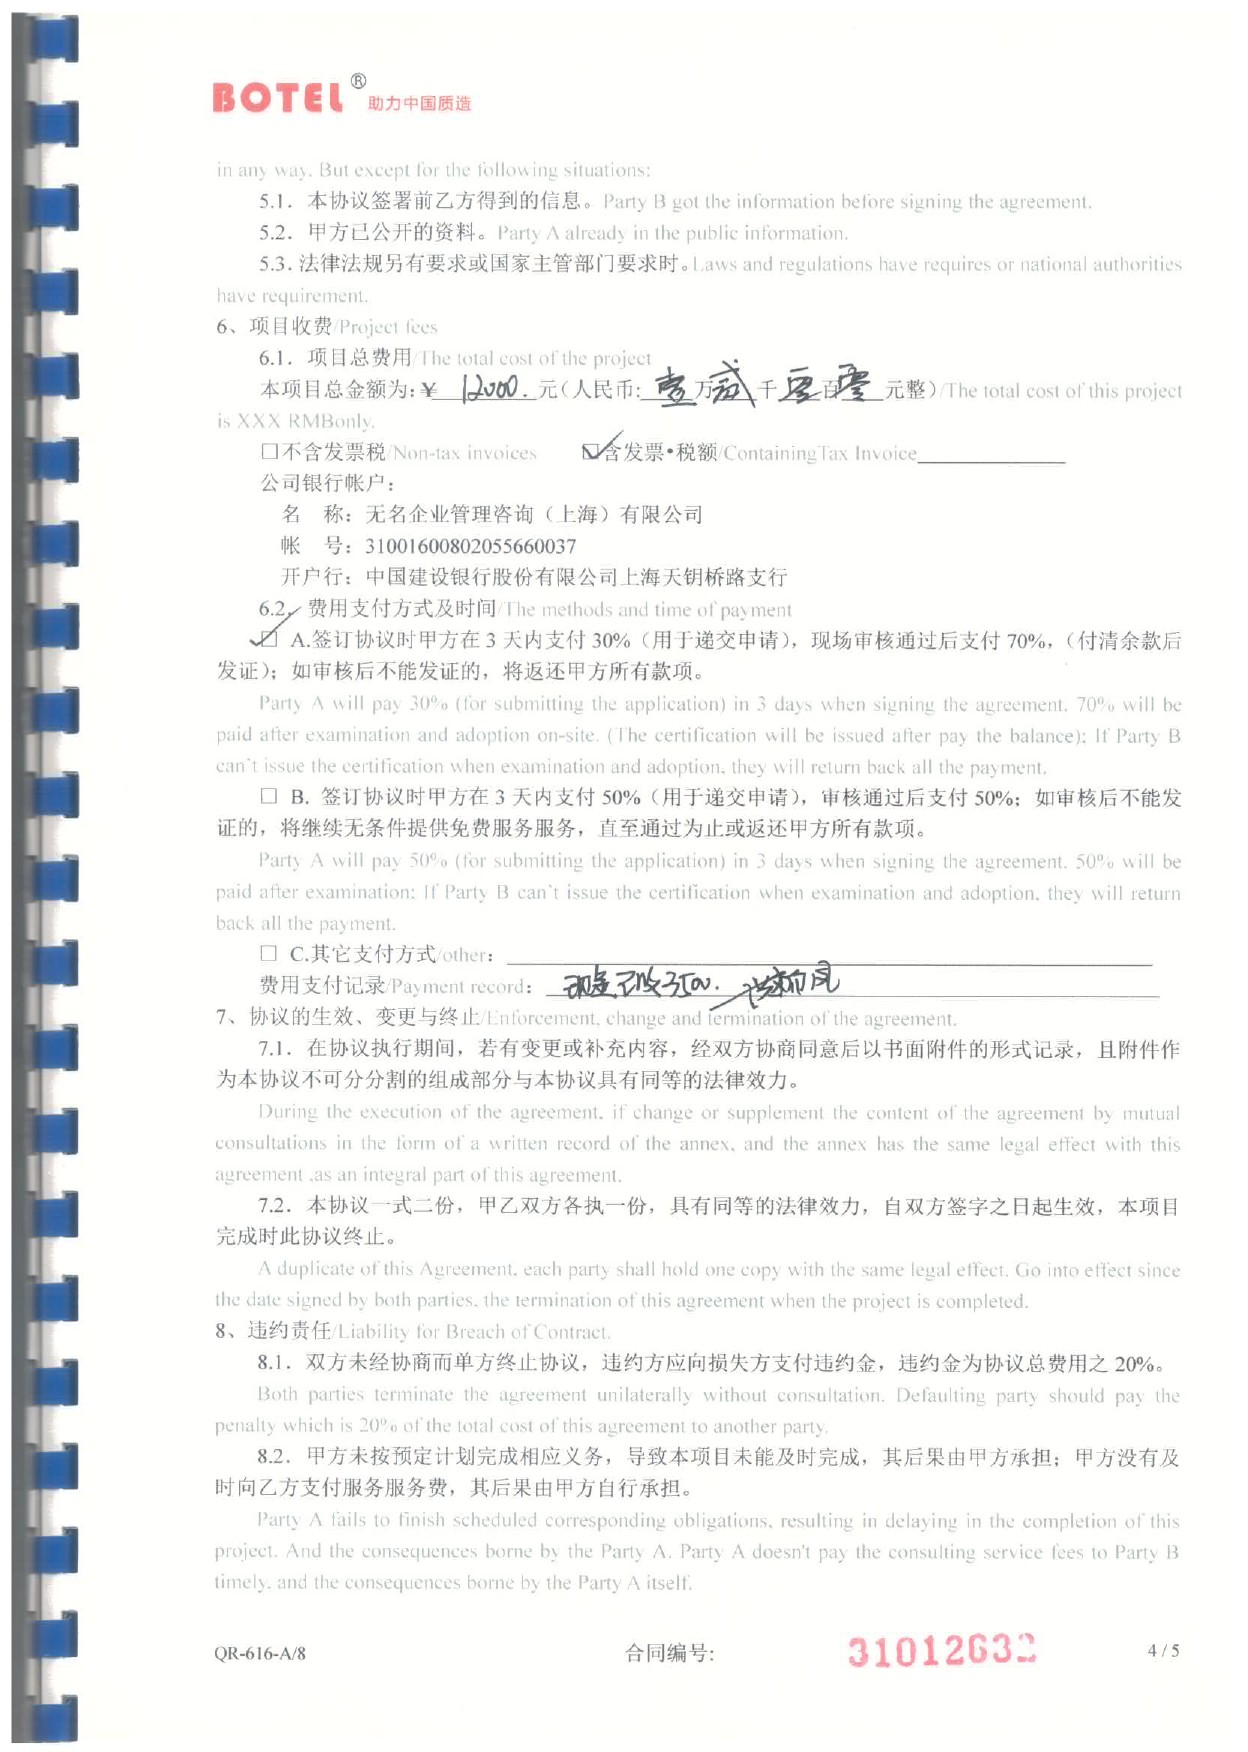 BOTEL® 助力中国质造
in any way. But except for the following situations:
5.1．本协议签署前乙方得到的信息。Party B got the information before signing the agreement.
5.2．甲方已公开的资料。Party A already in the public information.
5.3．法律法规另有要求或国家主管部门要求时。Laws and regulations have requires or national authorities
have requirement.
6、项目收费/Project fees
6.1．项目总费用/The total cost of the project
本项目总金额为:￥ 12000. 元（人民币: 壹万贰千零百零元整）/The total cost of this project
is XXX RMBonly.
□不含发票税/Non-tax invoices ☑含发票•税额/ContainingTax Invoice
公司银行帐户：
名 称：无名企业管理咨询（上海）有限公司
帐 号：31001600802055660037
开户行：中国建设银行股份有限公司上海天钥桥路支行
6.2．费用支付方式及时间/The methods and time of payment
☑ A.签订协议时甲方在 3 天内支付 30%（用于递交申请），现场审核通过后支付 70%，（付清余款后
发证）；如审核后不能发证的，将返还甲方所有款项。
Party A will pay 30% (for submitting the application) in 3 days when signing the agreement. 70% will be
paid after examination and adoption on-site. (The certification will be issued after pay the balance); If Party B
can't issue the certification when examination and adoption, they will return back all the payment.
□ B. 签订协议时甲方在 3 天内支付 50%（用于递交申请），审核通过后支付 50%；如审核后不能发
证的，将继续无条件提供免费服务服务，直至通过为止或返还甲方所有款项。
Party A will pay 50% (for submitting the application) in 3 days when signing the agreement. 50% will be
paid after examination; If Party B can't issue the certification when examination and adoption, they will return
back all the payment.
□ C.其它支付方式/other：
费用支付记录/Payment record： 现金已收3500.
7、协议的生效、变更与终止/Enforcement, change and termination of the agreement.
7.1．在协议执行期间，若有变更或补充内容，经双方协商同意后以书面附件的形式记录，且附件作
为本协议不可分分割的组成部分与本协议具有同等的法律效力。
During the execution of the agreement, if change or supplement the content of the agreement by mutual
consultations in the form of a written record of the annex, and the annex has the same legal effect with this
agreement ,as an integral part of this agreement.
7.2．本协议一式二份，甲乙双方各执一份，具有同等的法律效力，自双方签字之日起生效，本项目
完成时此协议终止。
A duplicate of this Agreement, each party shall hold one copy with the same legal effect. Go into effect since
the date signed by both parties, the termination of this agreement when the project is completed.
8、违约责任/Liability for Breach of Contract.
8.1．双方未经协商而单方终止协议，违约方应向损失方支付违约金，违约金为协议总费用之 20%。
Both parties terminate the agreement unilaterally without consultation. Defaulting party should pay the
penalty which is 20% of the total cost of this agreement to another party.
8.2．甲方未按预定计划完成相应义务，导致本项目未能及时完成，其后果由甲方承担；甲方没有及
时向乙方支付服务服务费，其后果由甲方自行承担。
Party A fails to finish scheduled corresponding obligations, resulting in delaying in the completion of this
project. And the consequences borne by the Party A. Party A doesn't pay the consulting service fees to Party B
timely, and the consequences borne by the Party A itself.
QR-616-A/8 合同编号: 31012632 4 / 5